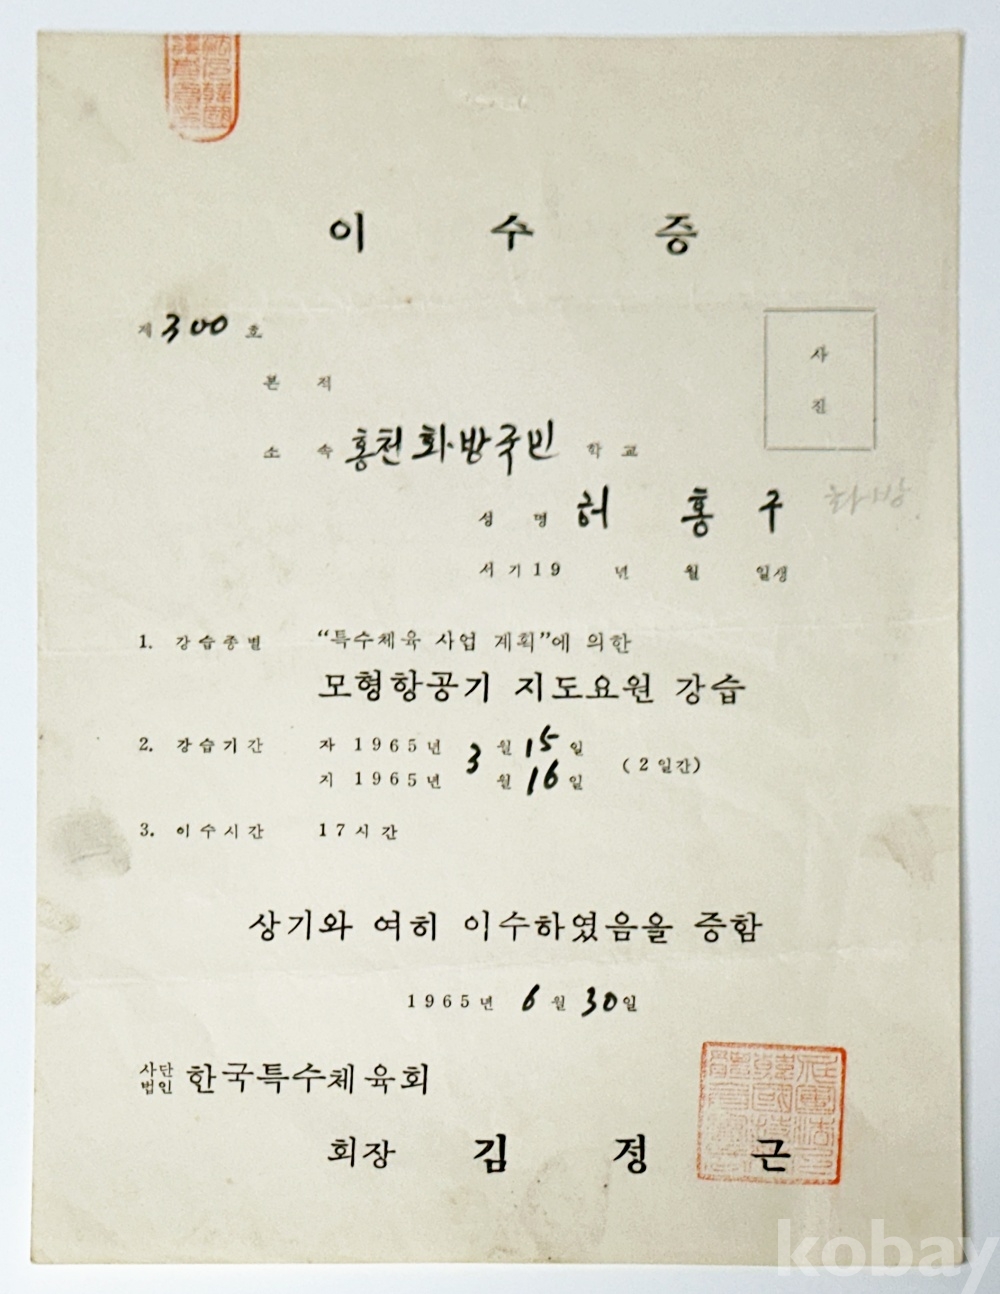 이 수 증
제 300 호
사
진
본 적
소 속 홍천 화방국민 학 교
성 명 허 홍 구 화방
서 기 1 9 년 월 일생
1. 강 습 종 별 “특수체육 사업 계획”에 의한
모형항공기 지도요원 강습
2. 강 습 기 간 자 1 9 6 5 년 3 월 15 일
지 1 9 6 5 년 월 16 일 ( 2 일간)
3. 이 수 시 간 1 7 시 간
상기와 여히 이수하였음을 증함
1 9 6 5 년 6 월 30 일
사단
법인 한국특수체육회
회장 김 정 근
kobay